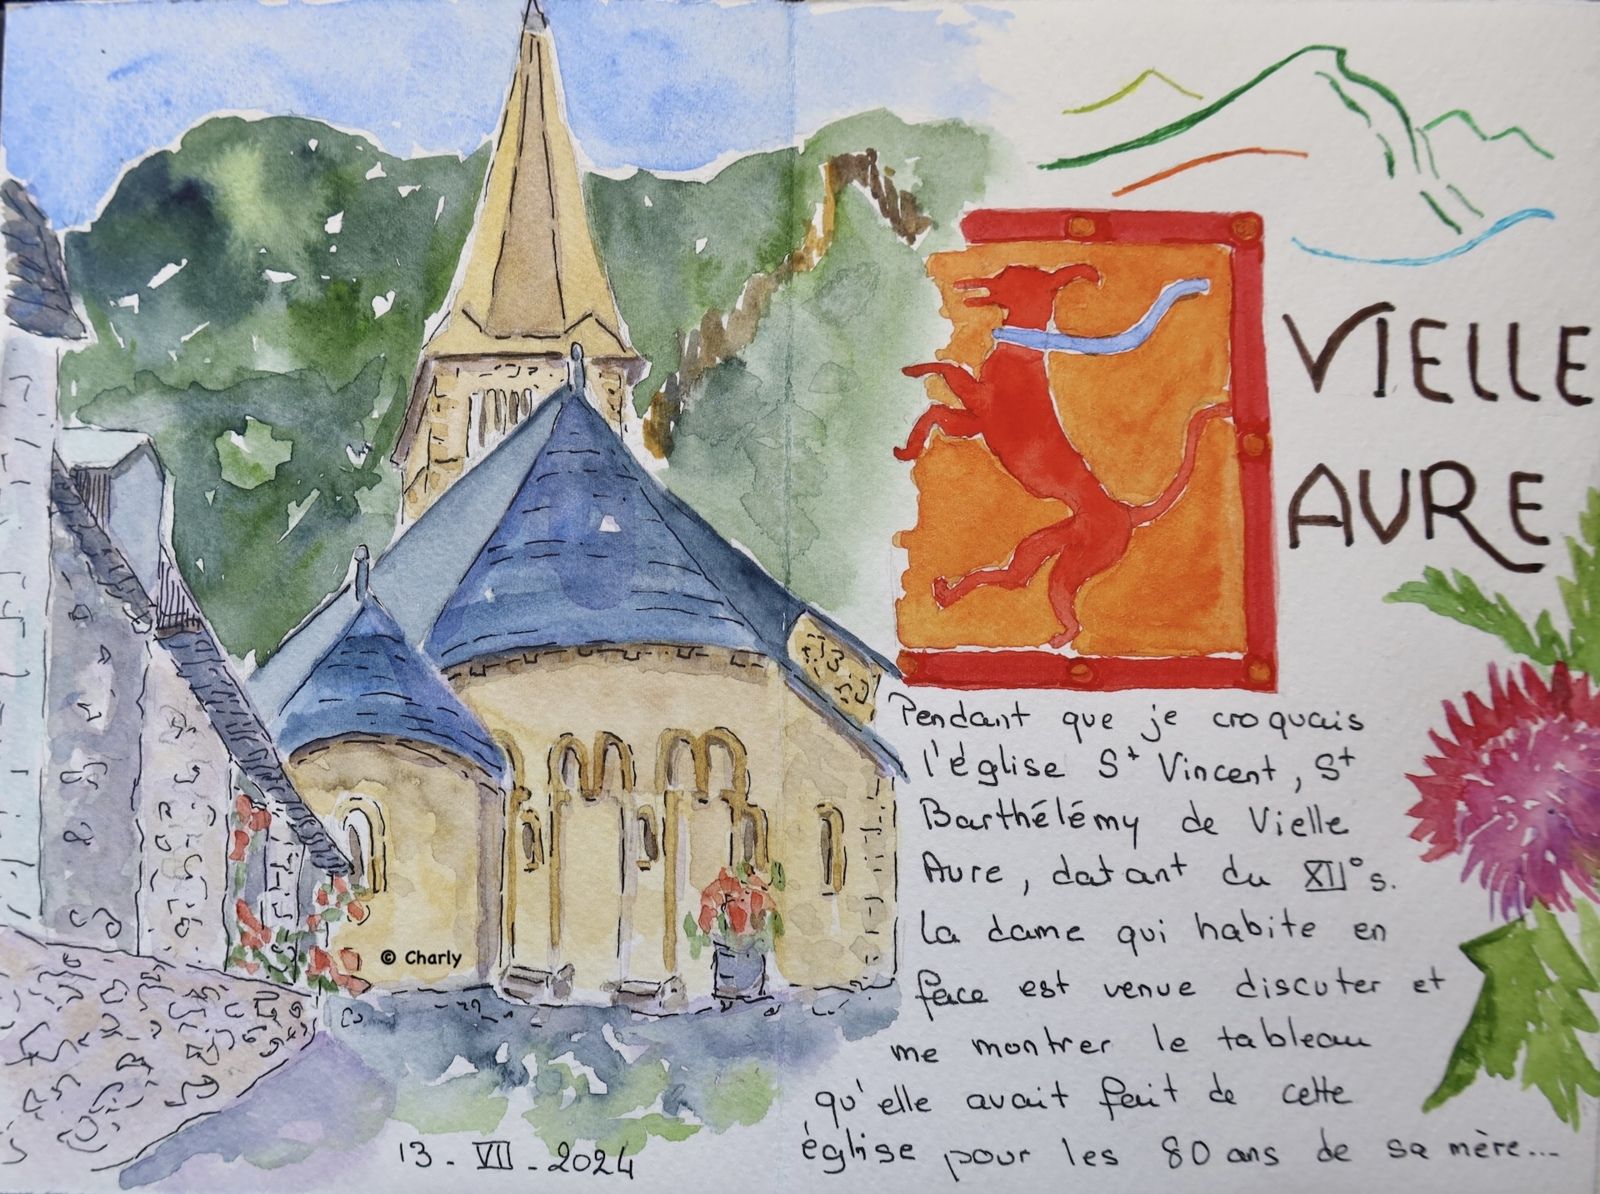 VIELLE
AURE
Pendant que je croquais
l'église St Vincent, St
Barthélémy de Vielle
Aure, datant du XII° s.
La dame qui habite en
face est venue discuter et
me montrer le tableau
qu'elle avait fait de cette
église pour les 80 ans de sa mère...
© Charly
13 - VII - 2024